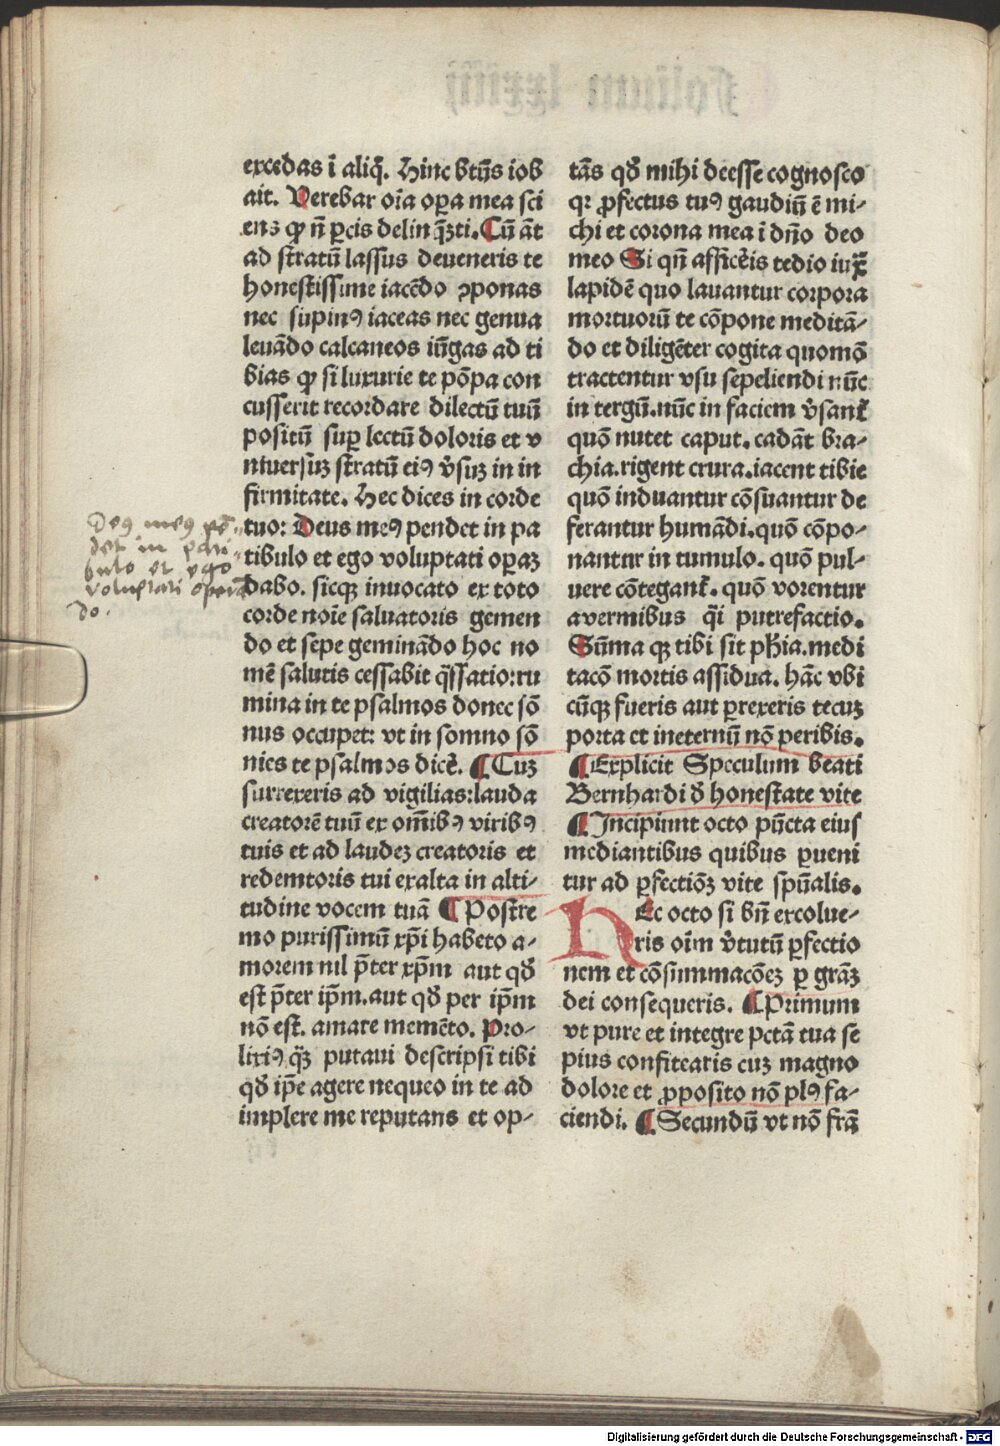 excedas ī aliq̄. Hinc btūs iob
ait. Verebar oīa oꝑa mea sci
ens ꝙ n̄ ꝑcis delin q̄nti. Cū āt
ad stratū lassus deueneris te
honestissime iacēdo ꝯponas
nec supinꝰ iaceas nec genua
leuādo calcaneos iūgas ad ti
bias ꝙ si luxurie te pōpa con
cusserit recordare dilectū tuū
positū suꝑ lectū doloris et v
niuersuꝫ stratū eiꝰ v̄suꝫ in in
firmitate. Hec dices in corde
tuo: Deus meꝰ pendet in pa
tibulo et ego voluptati oꝑaꝫ
dabo. sicqꝫ inuocato ex toto
corde noīe saluatoris gemen
do et sepe geminādo hoc no
mē salutis cessabit q̄ssatio: ru
mina in te psalmos donec sō
nus occupet: vt in somno sō
nies te psalmos dicē. ¶ Cuꝫ
surrexeris ad vigilias: lauda
creatorē tuū ex om̄ibꝰ viribꝰ
tuis et ad laudeꝫ creatoris et
redemtoris tui exalta in alti-
tudine vocem tuā ¶ Postre
mo purissimū xp̄i habeto a-
morem nil p̄ter xp̄m aut qđ
est p̄ter ip̄m. aut qđ per ip̄m
nō est. amare memēto. Pro-
lixiꝰ q̄ꝫ putaui descripsi tibi
qđ ip̄e agere nequeo in te ad
implere me reputans et op-
Deꝰ meꝰ pē-
det in pati-
bulo et ego
voluptati operā
do.
tās qđ mihi deesse cognosco
qꝛ ꝓfectus tuꝰ gaudiū ē mi-
chi et corona mea ī dn̄o deo
meo Si qn̄ afficēis tedio iux̄
lapidē quo lauantur corpora
mortuorū te cōpone meditā-
do et diligēter cogita quomō
tractentur vsu sepeliendi nūc
in tergū. nūc in faciem v̄sant᷑
quō nutet caput. cadāt bra-
chia. rigent crura. iacent tibie
quō induantur cōsuantur de
ferantur humādi. quō cōpo-
nantnr in tumulo. quō pul-
uere cōtegant᷑. quō vorentur
a vermibus q̄i putrefactio.
Sūma qꝫ tibi sit ph̄ia. medi
tacō mortis assidua. hāc vbi
cūqꝫ fueris aut ꝑrexeris tecuꝫ
porta et ineternū nō peribis.
¶ Explicit Speculum beati
Bernhardi đ honestate vite
¶ Incipiunt octo pūcta eius
mediantibus quibus ꝑueni
tur ad ꝑfectiōꝫ vite spūalis.
Hec octo si bn̄ excolue-
ris oīm v̄tutū ꝑfectio
nem et cōsummacōeꝫ ꝑ grāꝫ
dei consequeris. ¶ Primum
vt pure et integre pctā tua se
pius confitearis cuꝫ magno
dolore et ꝓposito nō plꝰ fa-
ciendi. ¶ Secundū vt nō frā
Digitalisierung gefördert durch die Deutsche Forschungsgemeinschaft - DFG